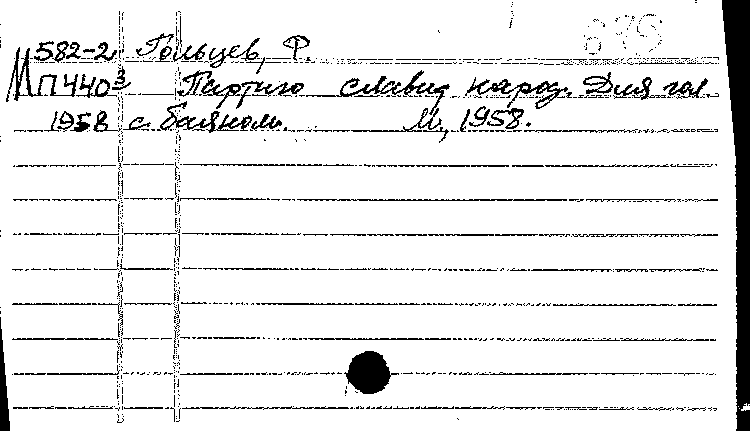 695
582-2 Гольцев, Ф.
М П440³ Партию славит народ. Для гол.
1958 с баяном. М., 1958.